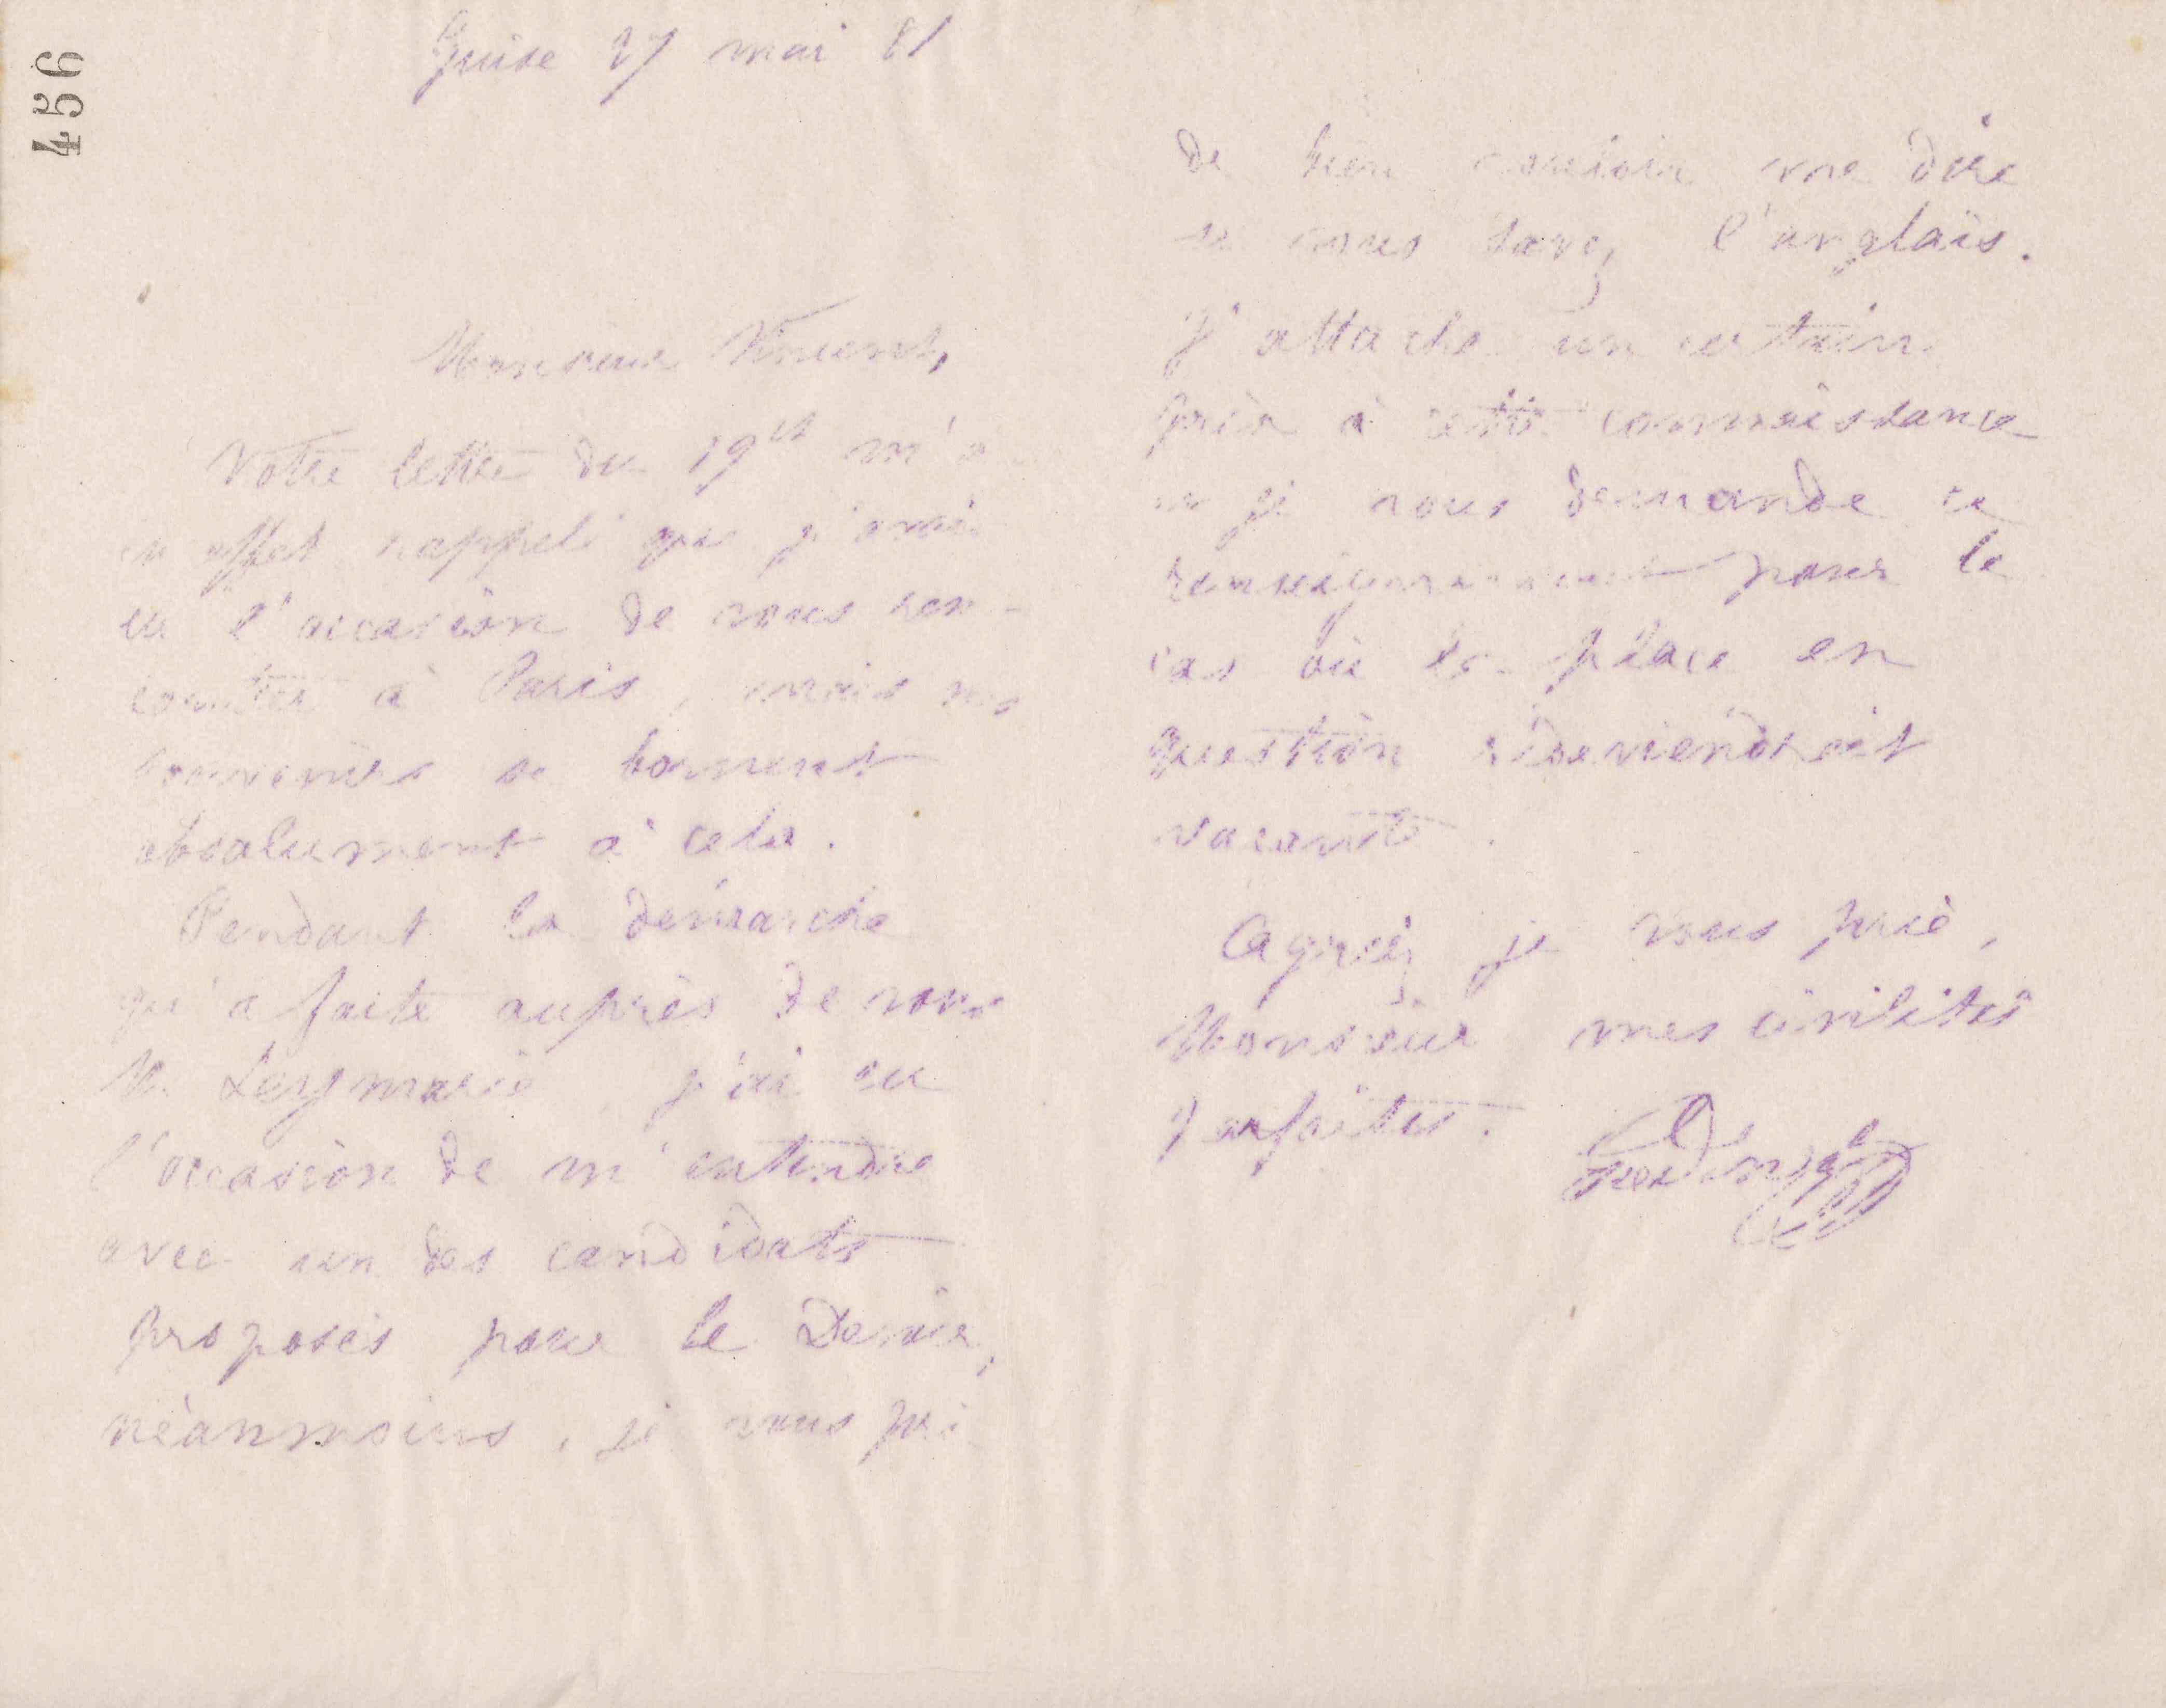 456
Guise 27 mai 81
Monsieur Vincent,
Votre lettre du 19 ct m'a
en effet rappelé que j'avais
eu l'occasion de vous ren-
contrer à Paris, mais mes
souvenirs se bornent
absolument à cela.
Pendant la démarche
qu'a faite auprès de vous
M. Leymarie, j'ai eu
l'occasion de m'entendre
avec un des candidats
proposés pour le Devoir,
néanmoins, je vous prie
de bien vouloir me dire
si vous savez l'anglais.
J'attache un certain
prix à cette connaissance
et je vous demande ce
renseignement pour le
cas où la place en
question redeviendrait
vacante.
Agréez je vous prie,
Monsieur mes civilités
parfaites.
Godin